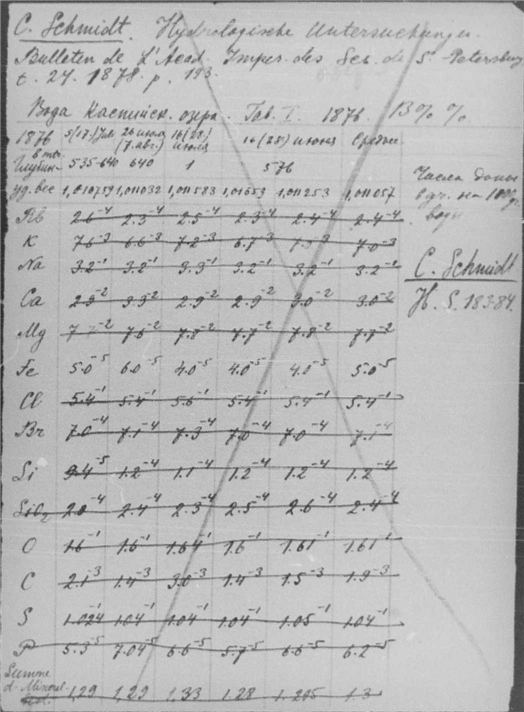 C. Schmidt. Hydrologische Untersuchungen.
Bulleten de L'Acad. Imper. des Sci. de St. Petersburg
t. 24. 1878. p. 193.
Вода Каспийск. озера. Tab. I. 1876. В % %
1876 5(17) 26 июля (7.авг.) 16(28) июля 16 (28) июня Среднее
Глубин. 535-640 640 1 576
уд. вес 1,010759 1,011032 1,011583 1,01053 1,011253 1,011057
Числа даны
в гр. на 1000 гр.
воды
C. Schmidt
H. S. 183-84.
Rb 2.6⁻⁴ 2.3⁻⁴ 2.5⁻⁴ 2.3⁻⁴ 2.4⁻⁴ 2.4⁻⁴
K 7.6⁻³ 6.6⁻³ 7.2⁻³ 6.7⁻³ 7.0⁻³
Na 3.2⁻¹ 3.2⁻¹ 3.3⁻¹ 3.2⁻¹ 3.2⁻¹ 3.2⁻¹
Ca 2.9⁻² 3.3⁻² 2.9⁻² 2.9⁻² 3.0⁻² 3.0⁻²
Mg 7.6⁻² 7.8⁻² 7.7⁻² 7.8⁻² 7.7⁻²
Fe 5.0⁻⁵ 6.0⁻⁵ 4.0⁻⁵ 4.0⁻⁵ 4.0⁻⁵ 5.0⁻⁵
Cl 5.4⁻¹ 5.4⁻¹ 5.6⁻¹ 5.4⁻¹ 5.4⁻¹ 5.4⁻¹
Br 7.0⁻⁴ 7.1⁻⁴ 7.3⁻⁴ 7.0⁻⁴ 7.0⁻⁴ 7.1⁻⁴
Li 9.4⁻⁵ 1.2⁻⁴ 1.1⁻⁴ 1.2⁻⁴ 1.2⁻⁴ 1.2⁻⁴
SiO₂ 2.0⁻⁴ 2.4⁻⁴ 2.3⁻⁴ 2.5⁻⁴ 2.6⁻⁴ 2.4⁻⁴
O 1.6⁻¹ 1.6⁻¹ 1.64⁻¹ 1.6⁻¹ 1.61⁻¹ 1.61⁻¹
C 2.1⁻³ 1.4⁻³ 3.0⁻³ 1.4⁻³ 1.5⁻³ 1.9⁻³
S 1.024⁻¹ 1.04⁻¹ 1.04⁻¹ 1.04⁻¹ 1.05⁻¹ 1.04⁻¹
P 5.3⁻⁵ 7.04⁻⁵ 6.6⁻⁵ 5.7⁻⁵ 6.6⁻⁵ 6.2⁻⁵
Summe
d. Mineral
1,29 1,29 1,33 1.28 1.295 1.3